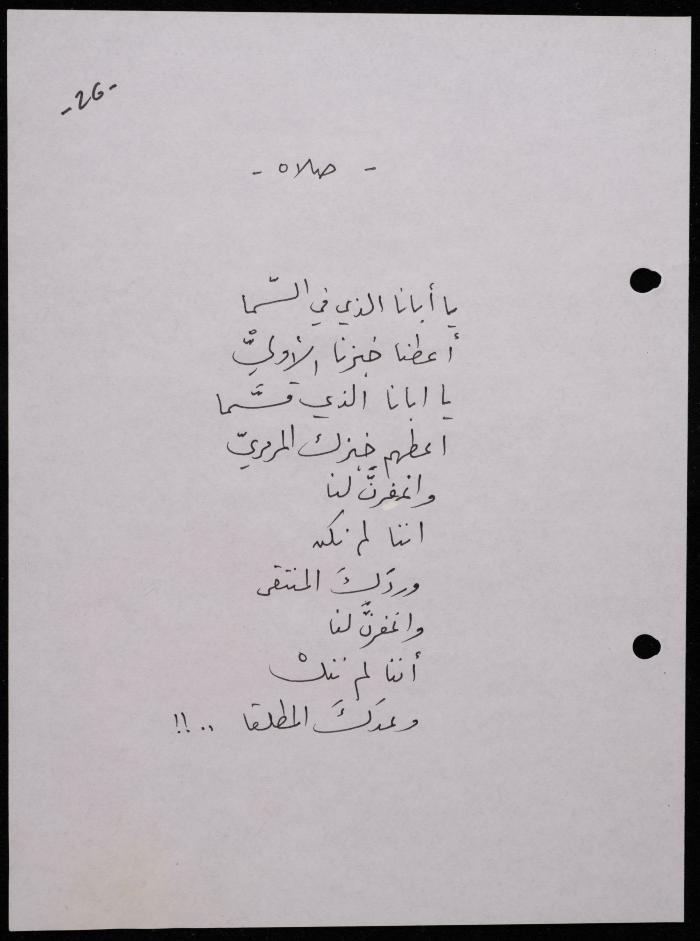 -26-
- صلاه -
يا أبانا الذي في السّما
أعطنا خبزنا الأوليّْ
يا ابانا الذي قسَّما
اعطهم خبزك المرمريّ
واغفرنَّ لنا
اننا لم نكن
وردَكَ المنتقى
واغفرنَّ لنا
أننا لم نكْ
وعدَكَ المطلقا ..!!